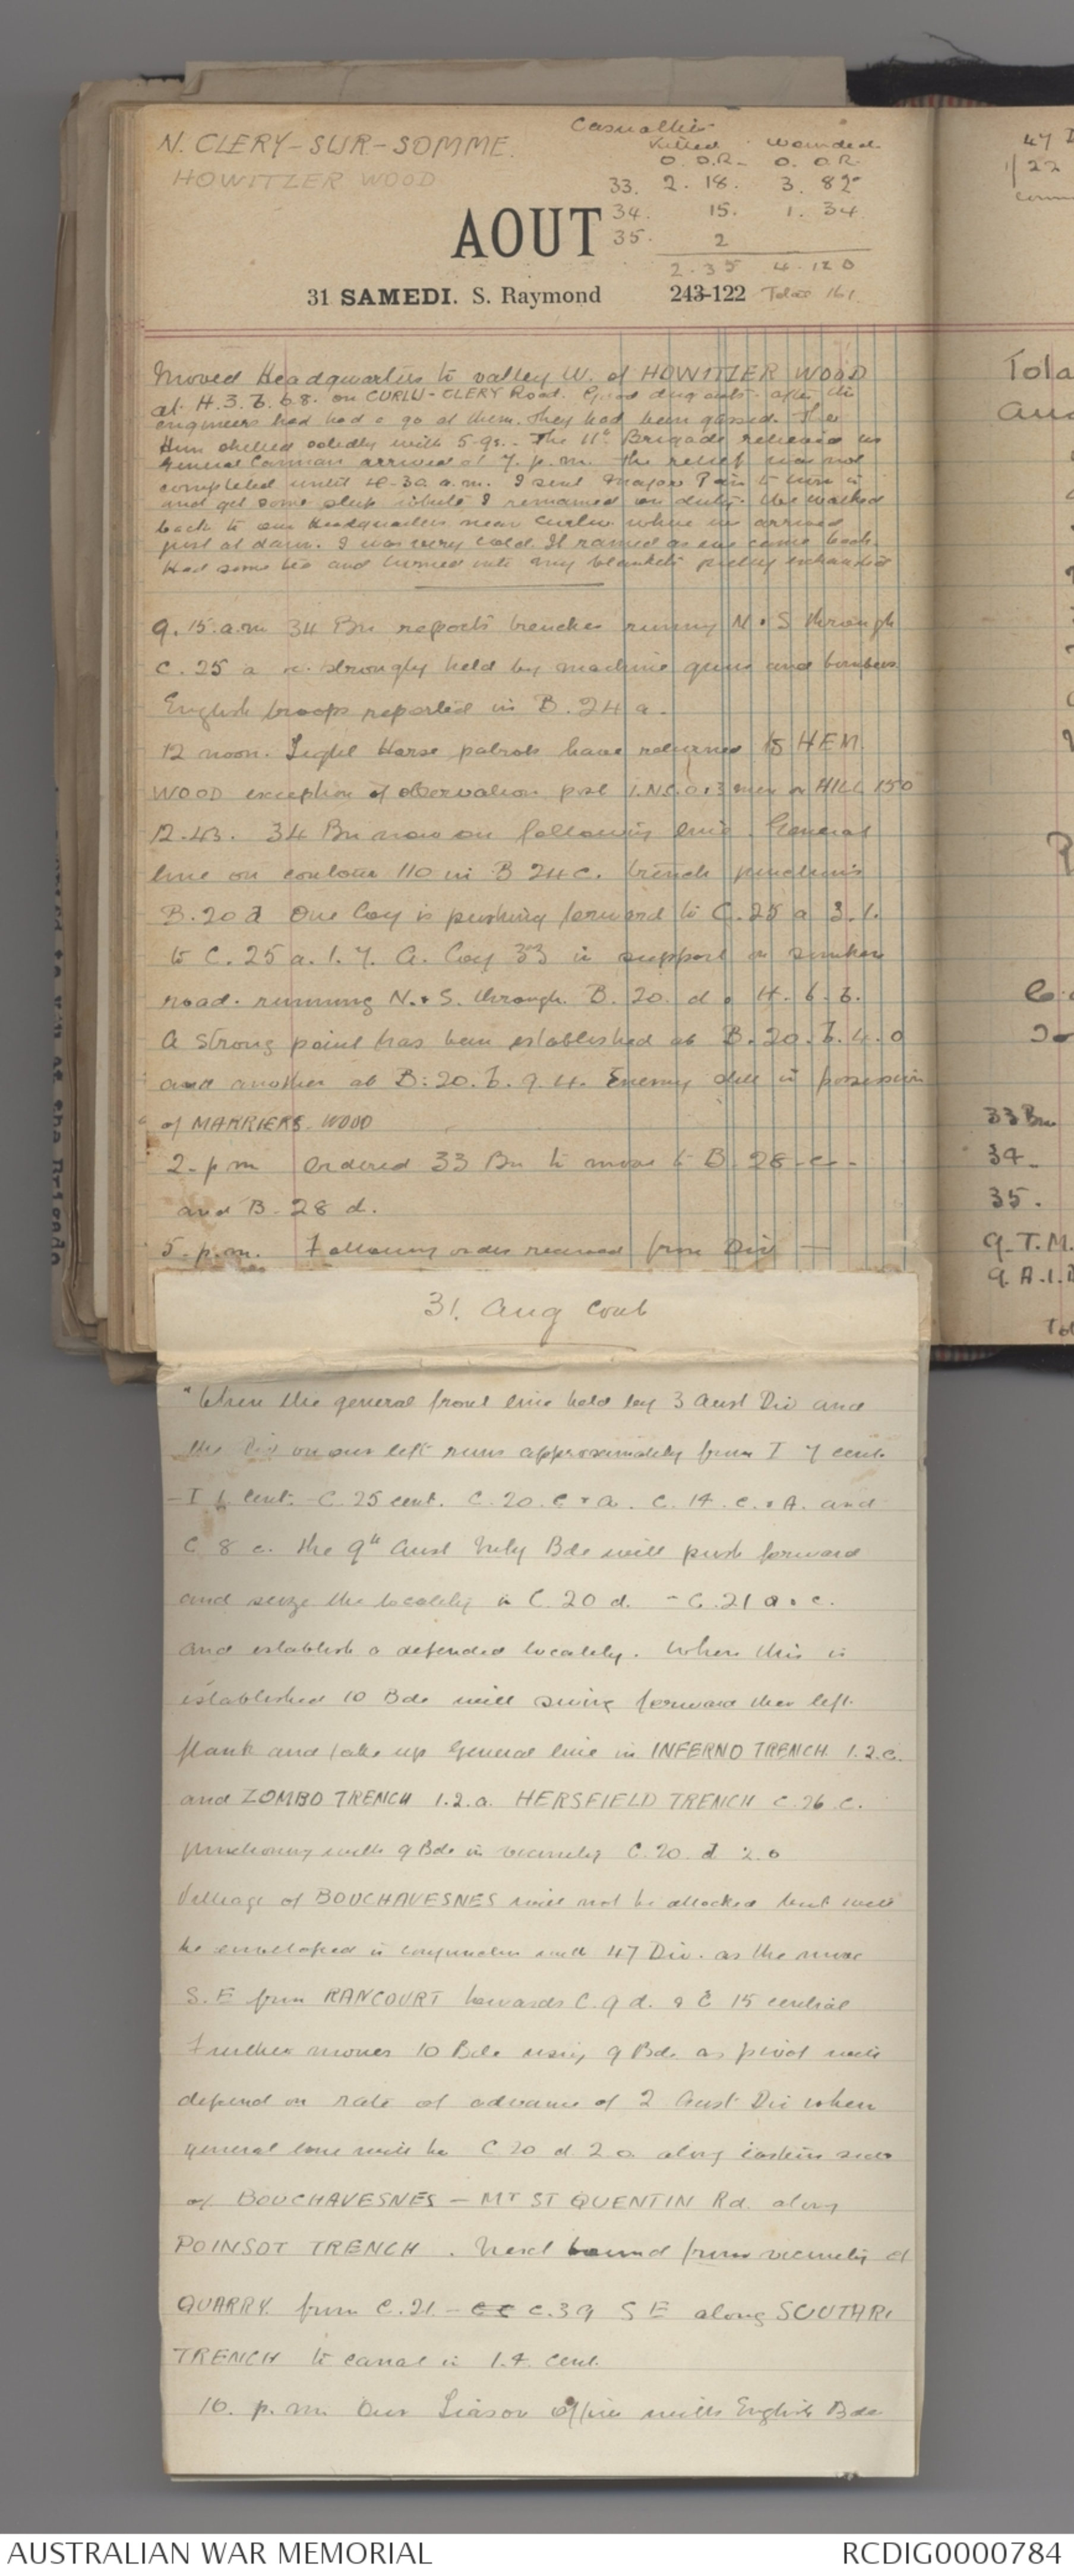 N. CLERY-SUR-SOMME.
HOWITZER WOOD
Casualties
Killed Wounded
O. O.R. O. O.R.
33. 2. 18. 3. 82
34. 15. 1. 34
35. 2
2. 35 4. 120
AOUT
31 SAMEDI. S. Raymond 243-122 Total 161.
Moved Headquarters to valley W. of HOWITZER WOOD
at H.3.b.6.8. on CURLU-CLERY Road. Good dug outs after the
engineers had had a go at them. They had been gassed. The
Hun shelled solidly with 5.9s. - The 11th Brigade relieved us
General Cannan arrived at 7. p.m. the relief was not
completed until 4-30 a.m. I sent Major to turn in
and get some sleep while I remained on duty. We walked
back to our Headquarters near Curlu where we arrived
just at dawn. I was very cold. It rained as we came back.
Had some tea and turned into my blankets pretty exhausted
9.15.a.m 34 Bn reports trenches running N & S through
C.25 a strongly held by machine guns and bombers
English troops reported in B.24 a.
12 noon. Light Horse patrols have returned to HEM
WOOD exception of observation post 1.N.C.O. & 3 men on HILL 150
12.43. 34 Bn now on following line. General
line on contour 110 in B 24 c. trench junctions
B.20 d One Coy is pushing forward to C.25 a 3.1.
to C.25 a.1.7. A. Coy 33 in support in sunken
road. running N. & S. through. B. 20. d. 4. 6. 3.
A strong point has been established at B.20.b.4.0
and another at B.20.b.9.4. Enemy still in possession
of MARRIERS WOOD
2. p.m Ordered 33 Bn to move to B.28.c.
and B. 28 d.
5. p.m. Following order received from Div —
31. Aug Cont
"When the general front line held by 3 Aust Div and
the Div on our left runs approximately from I 7 cent.
- I 1 Cent. - C.25 cent. C.20.c & a. C.14.c. & A. and
C 8 c. the 9th Aust Infty Bde will push forward
and seize the locality in C.20 d. - C.21 a. c.
and establish a defended locality. When this is
established 10 Bde will swing forward their left
flank and take up General line in INFERNO TRENCH. 1.2.c.
and ZOMBO TRENCH 1.2.a. HERSFIELD TRENCH C.26.C.
junctioning with 9 Bde in vicinity C.20 d 2.0
Village of BOUCHAVESNES will not be attacked but will
be enveloped in conjunction with 47 Div. as the move
S.E from RANCOURT towards C.9 d. & C 15 central
Further moves 10 Bde using 9 Bde as pivot will
depend on rate of advance of 2 Aust Div when
general line will be C 20 d 2 0 along eastern side
of BOUCHAVESNES - MT ST QUENTIN Rd. along
POINSOT TRENCH. Next bound from vicinity of
QUARRY. from C.21 - C.39 S E along
TRENCH to canal in 1.4. Cent.
10. p.m. Our Liason officer with English Bde
AUSTRALIAN WAR MEMORIAL
RCDIG0000784